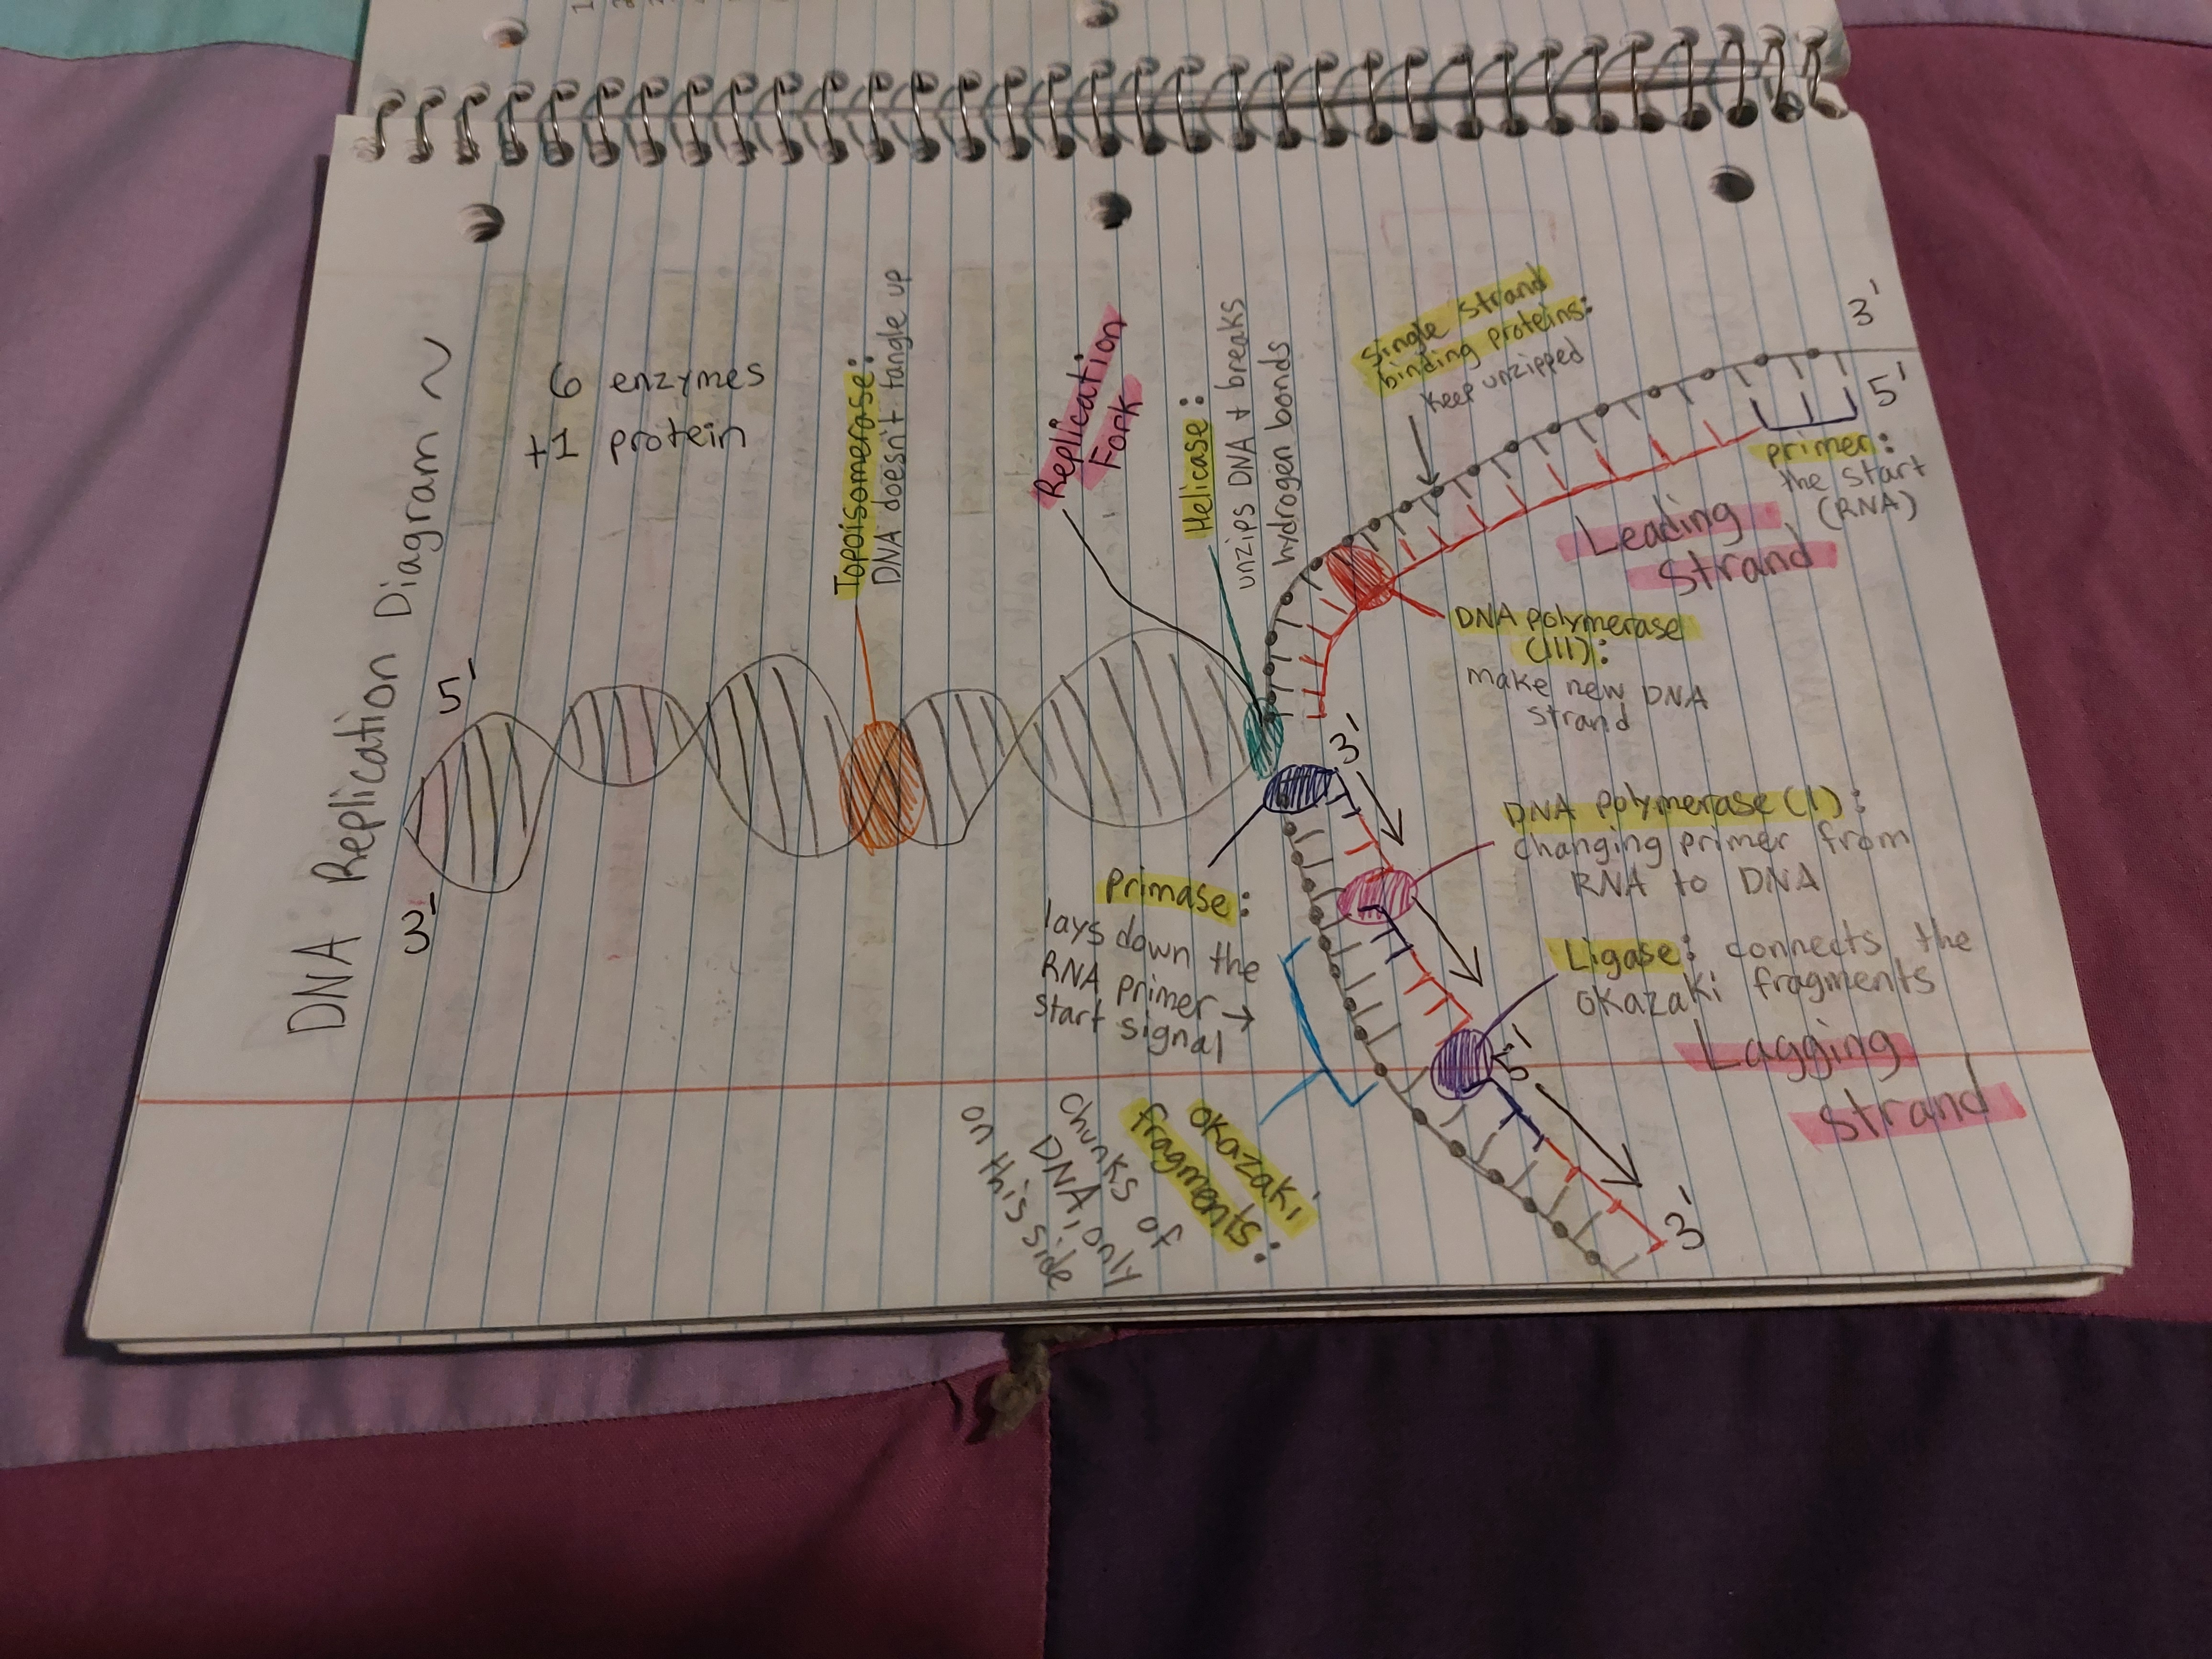 DNA Replication Diagram ~
6 enzymes
+1 protein
5'
3'
Topoisomerase:
DNA doesn't tangle up
Replication
Fork
Helicase:
unzips DNA + breaks
hydrogen bonds
Single strand
binding proteins:
keep unzipped
3'
5'
primer:
the start
(RNA)
Leading
Strand
DNA polymerase
(III):
make new DNA
strand
3'
primase:
lays down the
RNA primer →
start signal
DNA polymerase (I):
changing primer from
RNA to DNA
Ligase: connects the
okazaki fragments
5'
Lagging
Strand
okazaki
fragments:
chunks of
DNA, only
on this side
3'